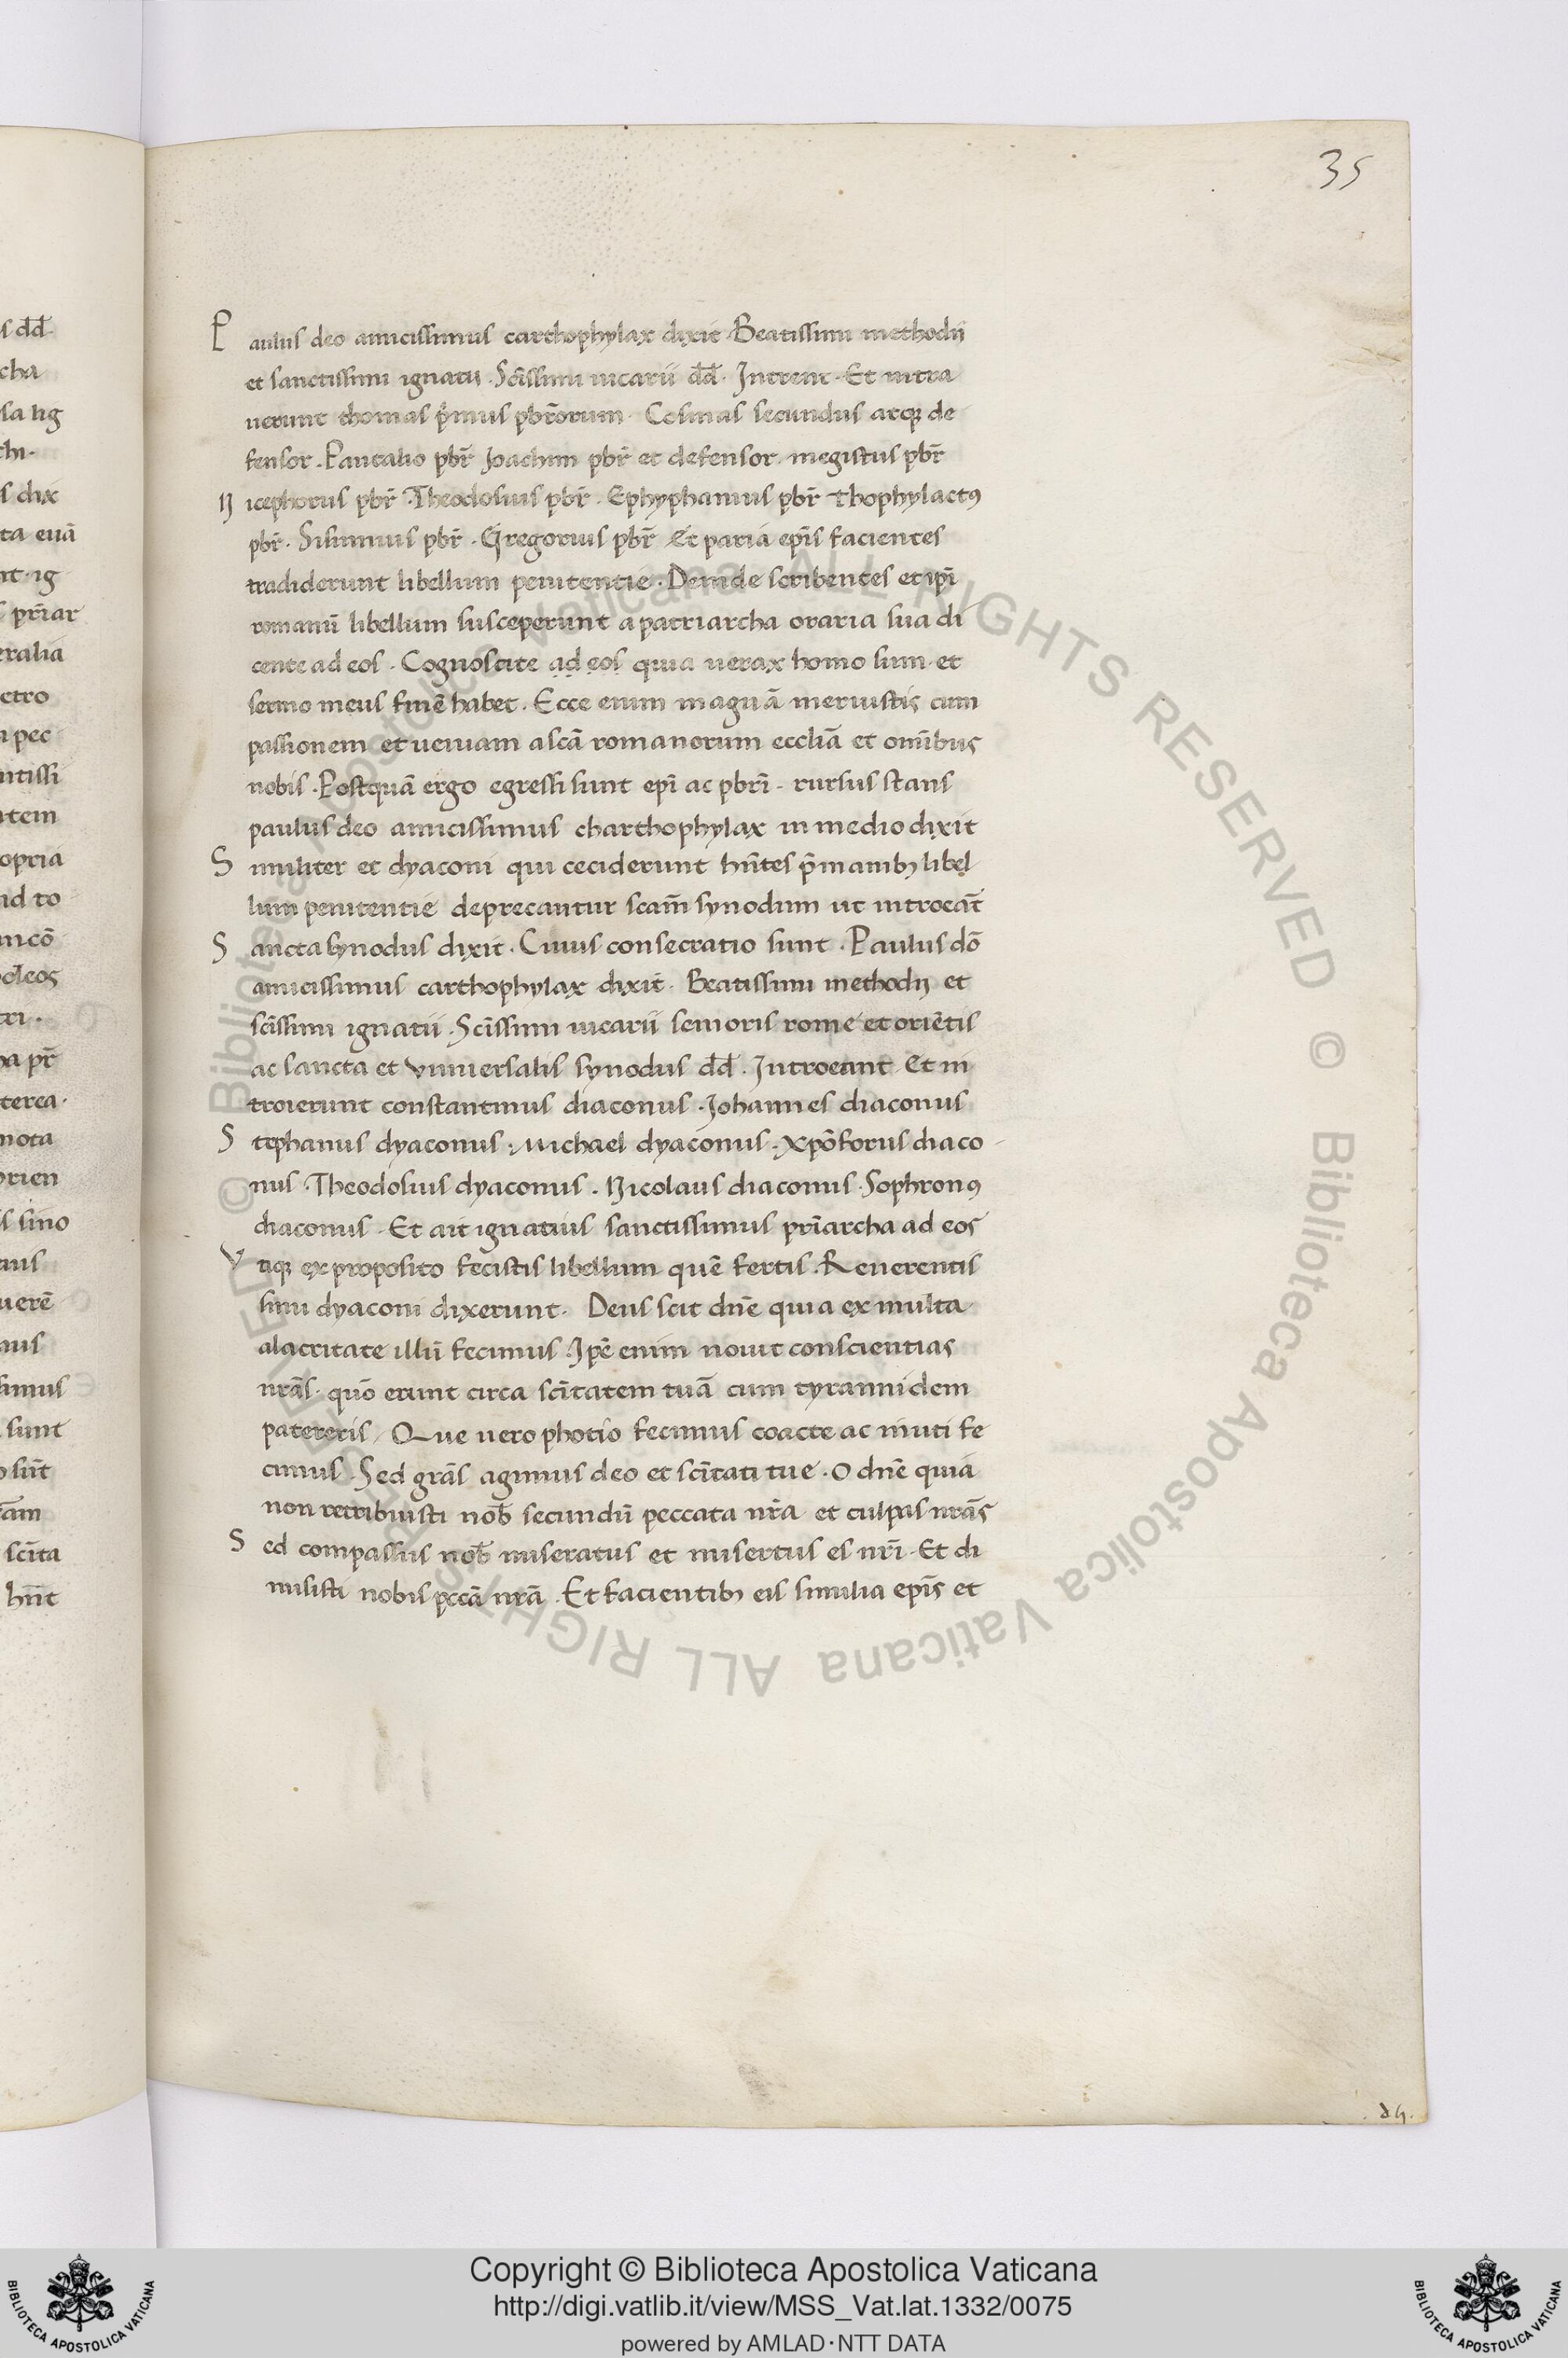 35
s dd̄
cha
sa lig
chi·
s dix
ta euā
nt · ig
s pr̄iar
eralia
etro
n pec
ntissi
ntem
opria
nd to
uncō
ocleos
tri ·
na pr̄
terea·
nota
orien
s sino
nus
uerē
nus
simus
sunt
o sūt
rām
scīta
hn̄t
Paulus deo amicissimus carthophylax dixit Beatissimi methodii
et sanctissimi ignatii · Sc̄issimi uicarii dd̄ · Intrent · Et intra
uerunt thomas p̄mus pbr̄orum · Cosmas secundus atq; de
fensor · Pantalio pbr̄ Joachim pbr̄ et defensor · megistus pbr̄
Nicephorus pbr̄ · Theodosius pbr̄ · Ephyphanius pbr̄ Thophylactꝰ
pbr̄ · Sisinnius pbr̄ · Gregorius pbr̄ Et paria ep̄is facientes
tradiderunt libellum penitentie · Deinde scribentes et ip̄i
romanū libellum susceperunt a patriarcha oraria sua di
cente ad eos · Cognoscite ad eos quia uerax homo sum · et
sermo meus finē habet · Ecce enim magnā meruistis cum
passionem et ueniam a scā romanorum eccliā et omībus
nobis · Postquā ergo egressi sunt epī ac pbrī · rursus stans
paulus deo amicissimus charthophylax in medio dixit
Similiter et dyaconi qui ceciderunt hn̄tes p̄ manibȝ libel
lum penitentie deprecantur scam̄ synodum ut introeāt
Sancta synodus dixit · Cuius consecratio sunt · Paulus dō
amicissimus carthophylax dixit · Beatissimi methodij et
scīssimi ignatii · Scīssimi uicarii senioris rome et oriētis
ac sancta et vniuersalis synodus dd̄ · Introeant Et in
troierunt constantinus diaconus · Johannes diaconus
Stephanus dyaconus · Michael dyaconus · Xpōforus diaco
nus · Theodosius dyaconus · Nicolaus diaconus · Sophronꝰ
diaconus · Et ait ignatius sanctissimus pr̄iarcha ad eos
Vtiq; ex proposito fecistis libellum quē fertis · Reuerentis
simi dyaconi dixerunt · Deus scit dn̄e quia ex multa
alacritate illū fecimus · Ip̄e enim nouit conscientias
nrās · quō erunt circa scītatem tuā cum tyrannidem
patereris · Que uero photio fecimus coacte ac inuiti fe
cimus · Sed grās agimus deo et scītati tue · O dn̄e quia
non retribuisti nob̄ secundū peccata nrā et culpas nrās
Sed compassus nob̄ miseratus et misertus es nrī · Et di
misisti nobis pccā nrā · Et facientibȝ eis similia epīs et
© Biblioteca Apostolica Vaticana ALL RIGHTS RESERVED © Biblioteca Apostolica Vaticana ALL RIGHTS RESERVED
Copyright © Biblioteca Apostolica Vaticana
http://digi.vatlib.it/view/MSS_Vat.lat.1332/0075
powered by AMLAD·NTT DATA
BIBLIOTECA APOSTOLICA VATICANA
BIBLIOTECA APOSTOLICA VATICANA